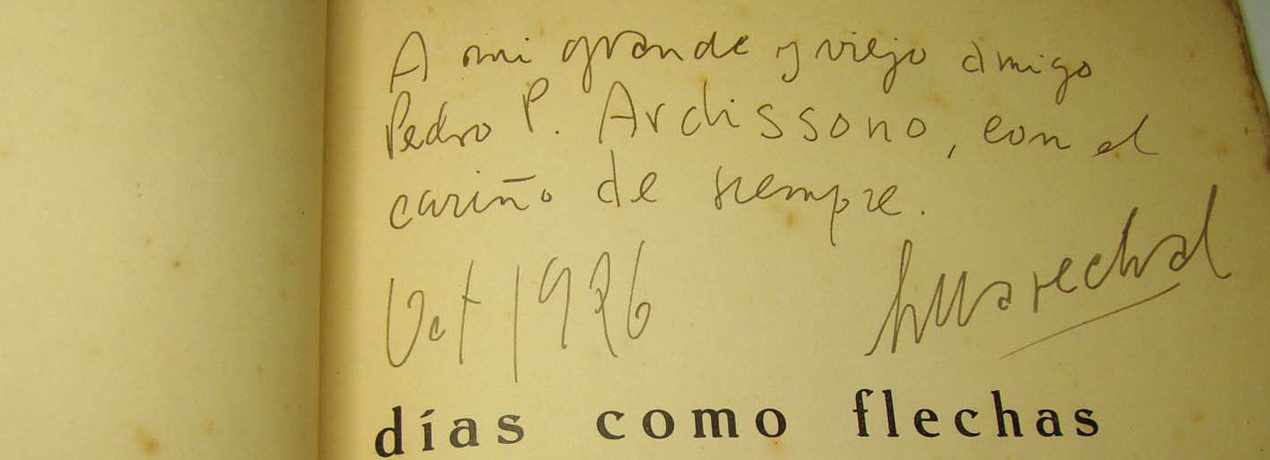 A mi grande y viejo amigo
Pedro P. Ardissono, con el
cariño de siempre.
Oct 1926 LMarechal
días como flechas